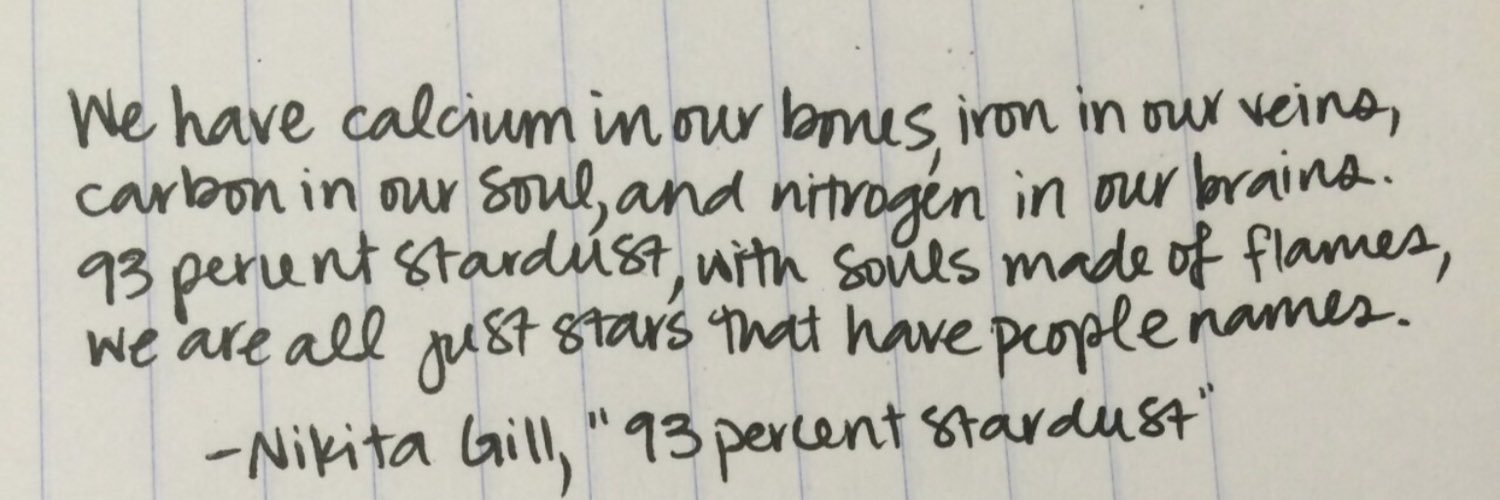 We have calcium in our bones, iron in our veins,
carbon in our soul, and nitrogen in our brains.
93 percent stardust, with souls made of flames,
we are all just stars that have people names.
-Nikita Gill, "93 percent stardust"